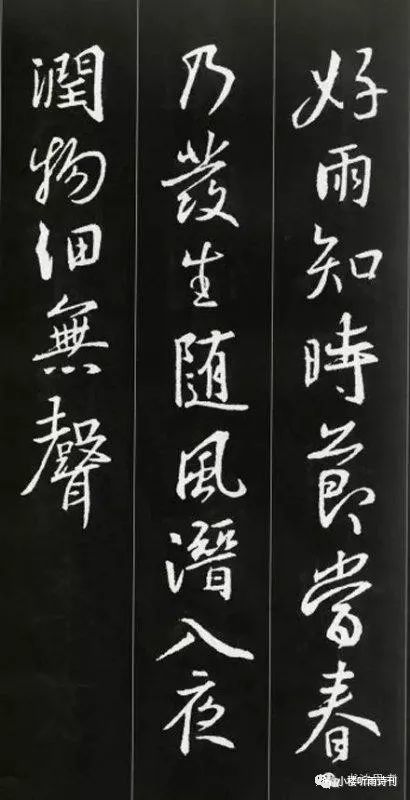 好雨知時節當春
乃發生随風潛入夜
潤物細無聲
小楼听雨诗刊